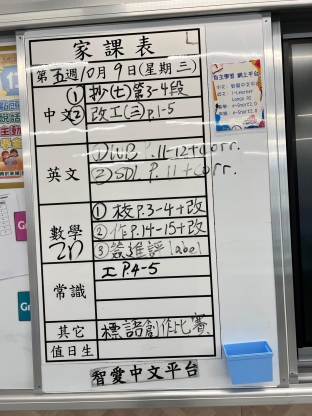 家課表
第五週10月9日(星期三)
中文
①抄(七)第3-4段
②改工(三)P.1-5
英文
①WB P.11-12+corr.
②SDL P.11+corr.
數學
①校P.3-4+改
②作P.14-15+改
③簽進評label
常識
工P.4-5
其它
標語創作比賽
值日生
智愛中文平台
自主學習 網上平台